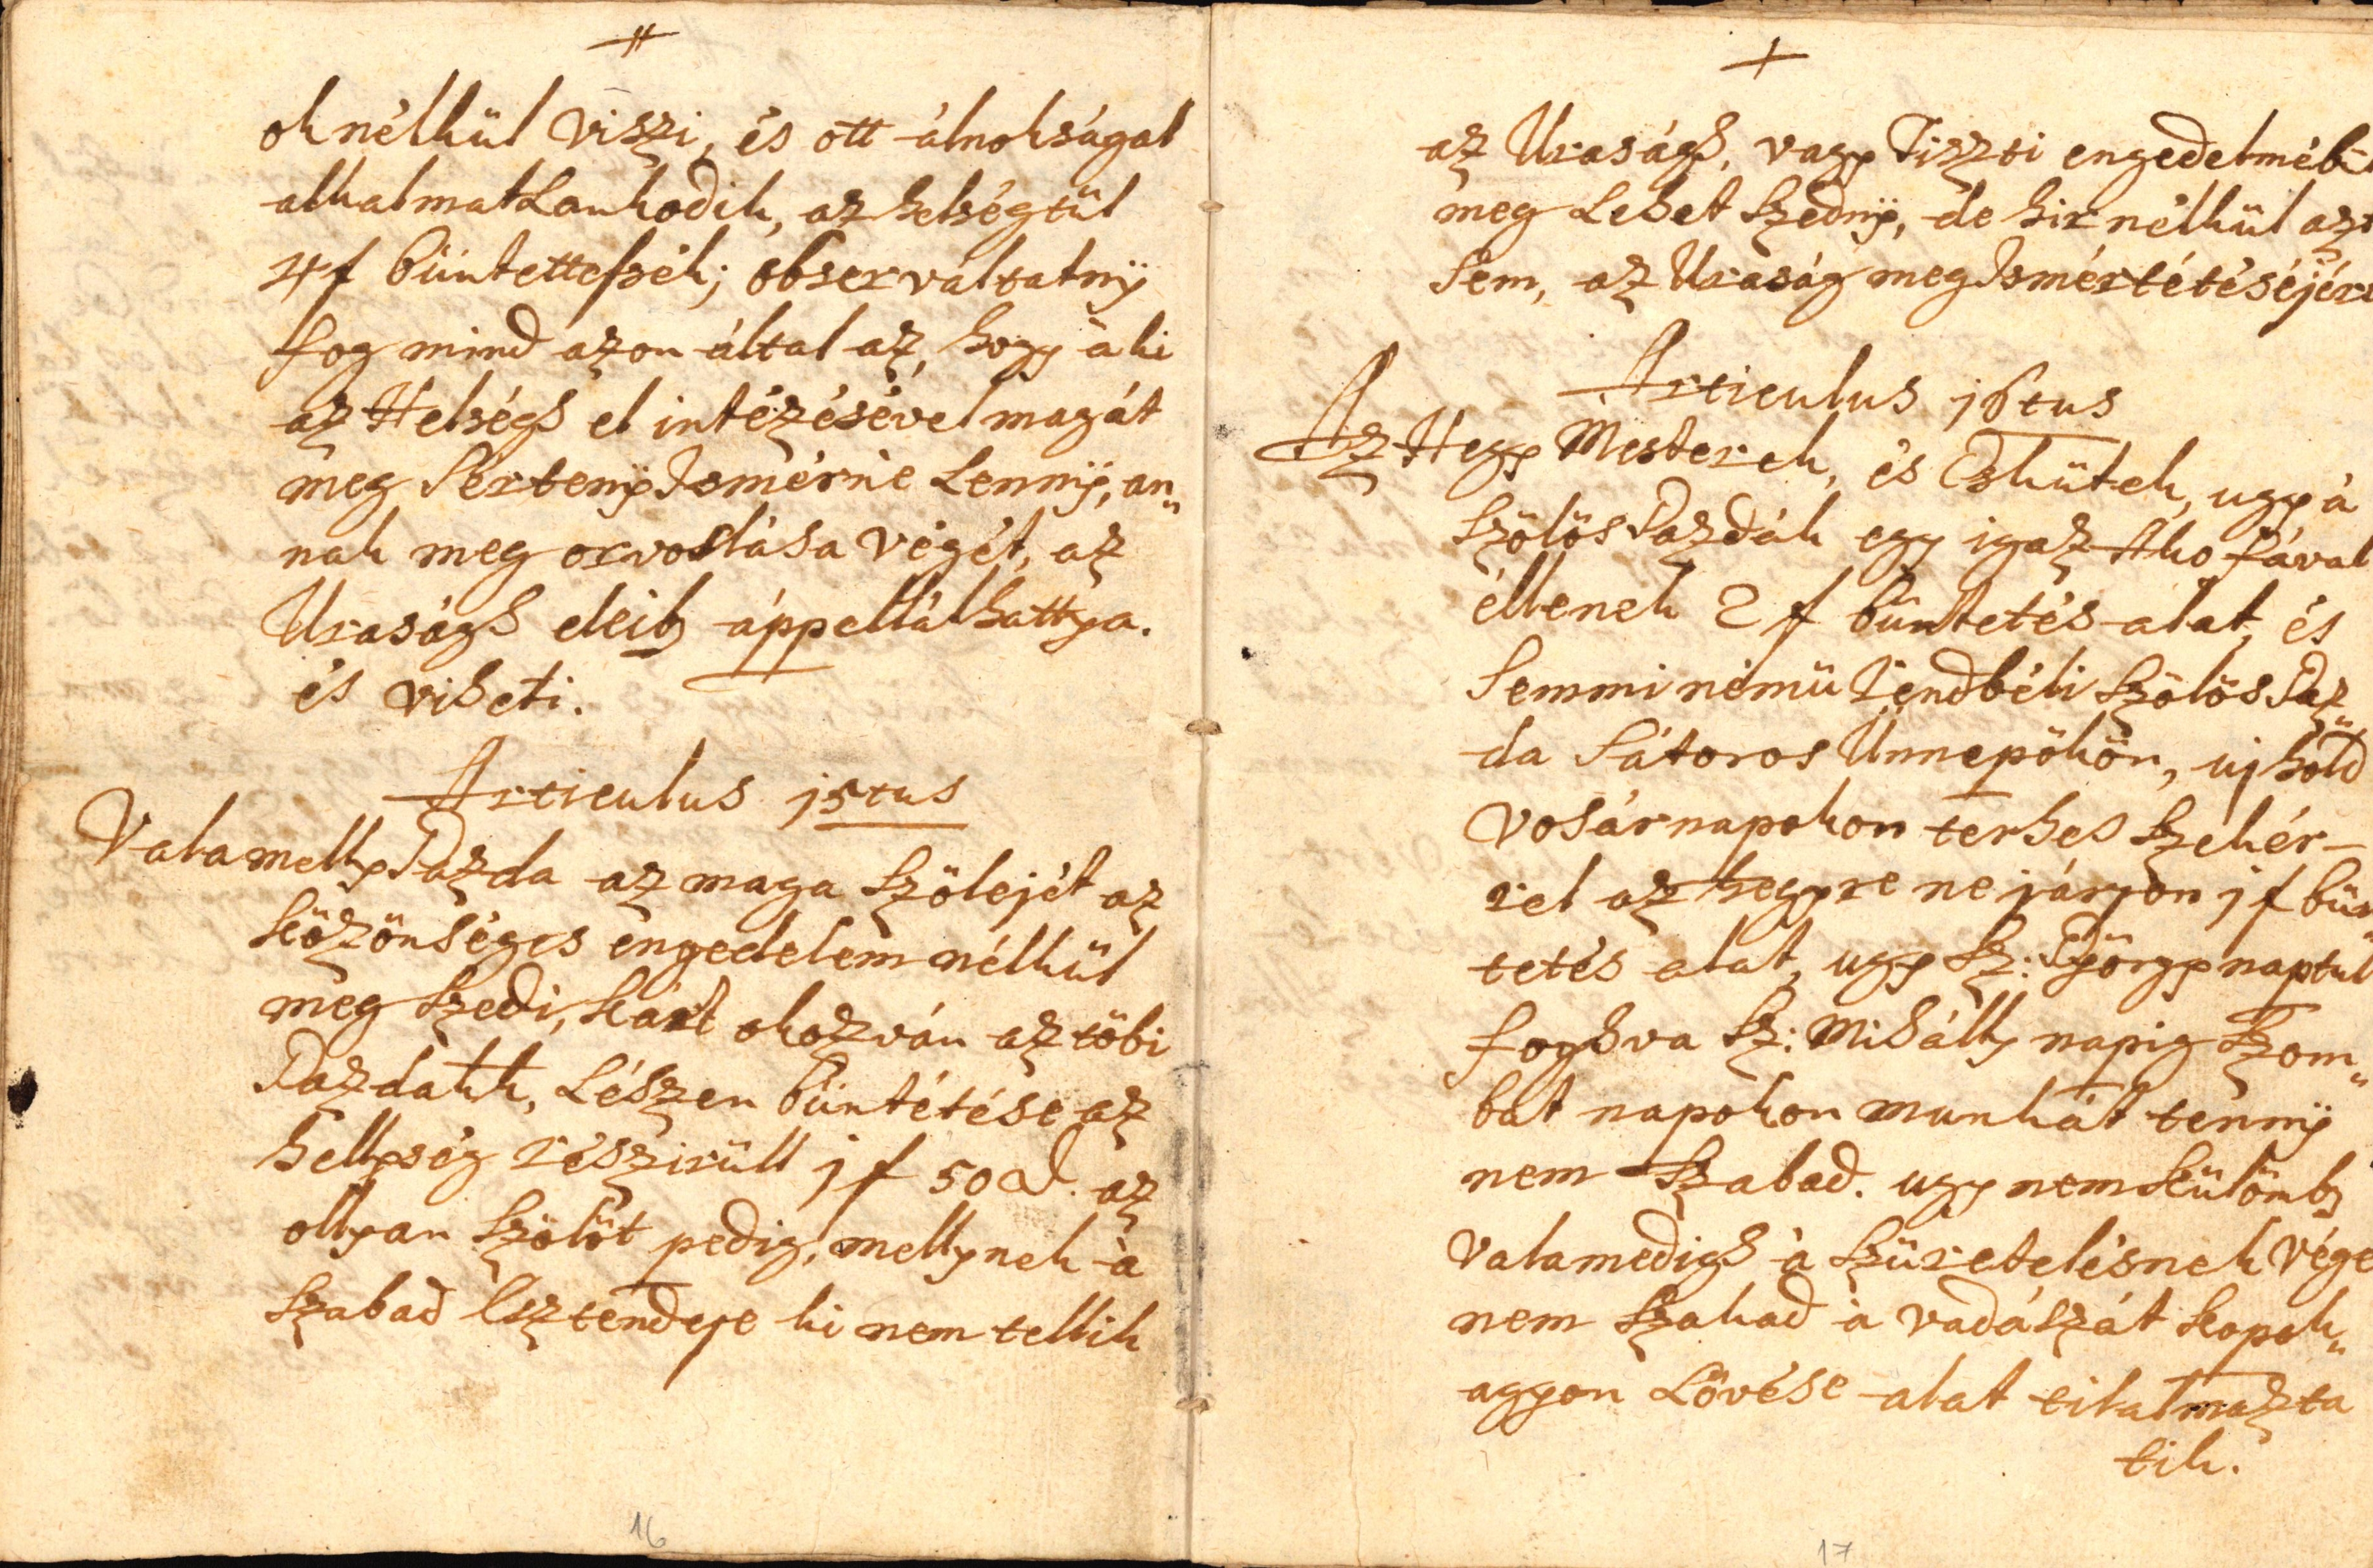 ok nélkül viszi, és ott álnokságal
alkalmatLankodik, az helségtül
4 f büntettessék; observáltatnÿ
fog mind azon által az, hogy à ki
az Helségh el intézésével magát
meg SértenÿIsmérné Lennÿ, an„
nak meg orvoslása végét, az
Uraságh eleib áppellálhattya.
és viheti.
Articulus 15tus
Valamelly Gazda az maga Szölejét az
közönséges engedelem nélkül
meg szedi, kárt okozván az töbi
Gazdakk, Lészen büntétése az
hellység részirüll 1 f 50 d. az
ollyan Szölöt pedig, mellynek à
Szabad Esztendeje ki nem tellik
16
az Uraságh, vagy Tiszti engedelméb
meg Lehet Szednÿ, de hir nélkül azt
Sem, az Uraság meg Ismértétéséjért
Articulus 16tus
Az Hegy Mesterek, és Eskütek, ugy à
Szölös Gazdák egy igaz Ako fával
éllenek 2 f büntetés alat, és
Semmi némü Rendbéli Szölös Gaz„
da Sátoros Ünnepökön, uj hold
vosárnapokon terhes Szekér-
rel az hegyre ne járjon 1 f bün„
tetés alat, ugy Sz: Györgynaptul
foghva Sz: Mihálly napig Szom„
bat napokon munkát tennÿ
nem Szabad. ugy nem külömb
valamedigh à Szüretelésnek vége
nem Szakad à vadászát kopok„
agyon Lövése alat tilalmazta
tik.
17